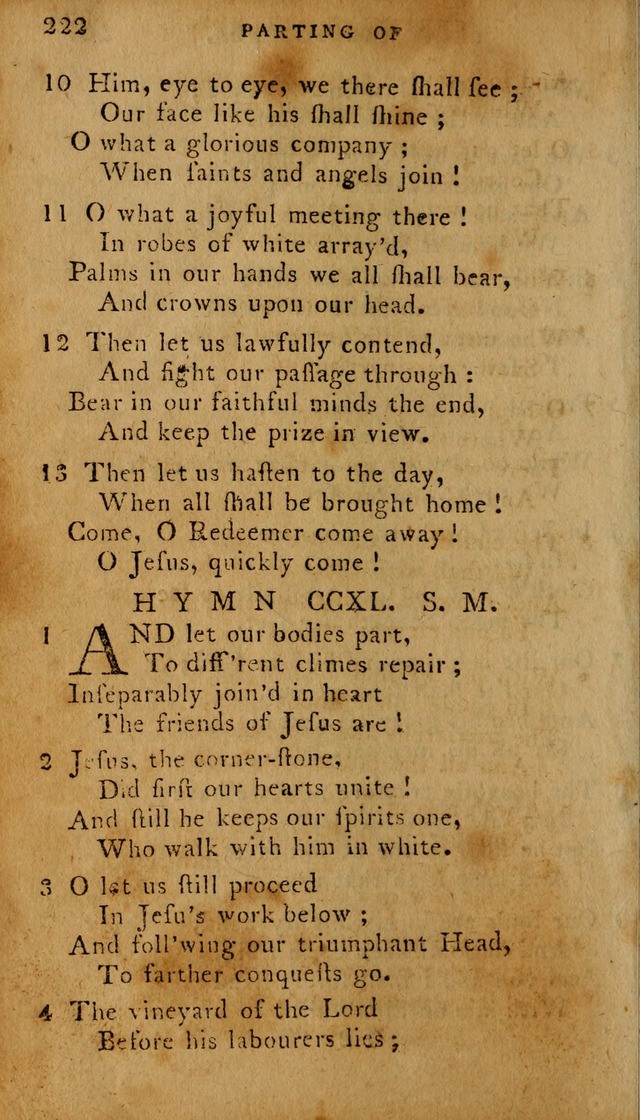 222 PARTING OF
10 Him, eye to eye, we there ſhall ſee ;
Our face like his ſhall ſhine ;
O what a glorious company ;
When ſaints and angels join !
11 O what a joyful meeting there !
In robes of white array'd,
Palms in our hands we all ſhall bear,
And crowns upon our head.
12 Then let us lawfully contend,
And fight our paſſage through :
Bear in our faithful minds the end,
And keep the prize in view.
13 Then let us haſten to the day,
When all ſhall be brought home !
Come, O Redeemer come away !
O Jeſus, quickly come !
HYMN CCXL. S. M.
1 AND let our bodies part,
To diff'rent climes repair ;
Inſeparably join'd in heart
The friends of Jeſus are !
2 Jeſus, the corner-ſtone,
Did firſt our hearts unite !
And ſtill he keeps our ſpirits one,
Who walk with him in white.
3 O let us ſtill proceed
In Jeſu's work below ;
And foll'wing our triumphant Head,
To farther conqueſts go.
4 The vineyard of the Lord
Before his labourers lies ;